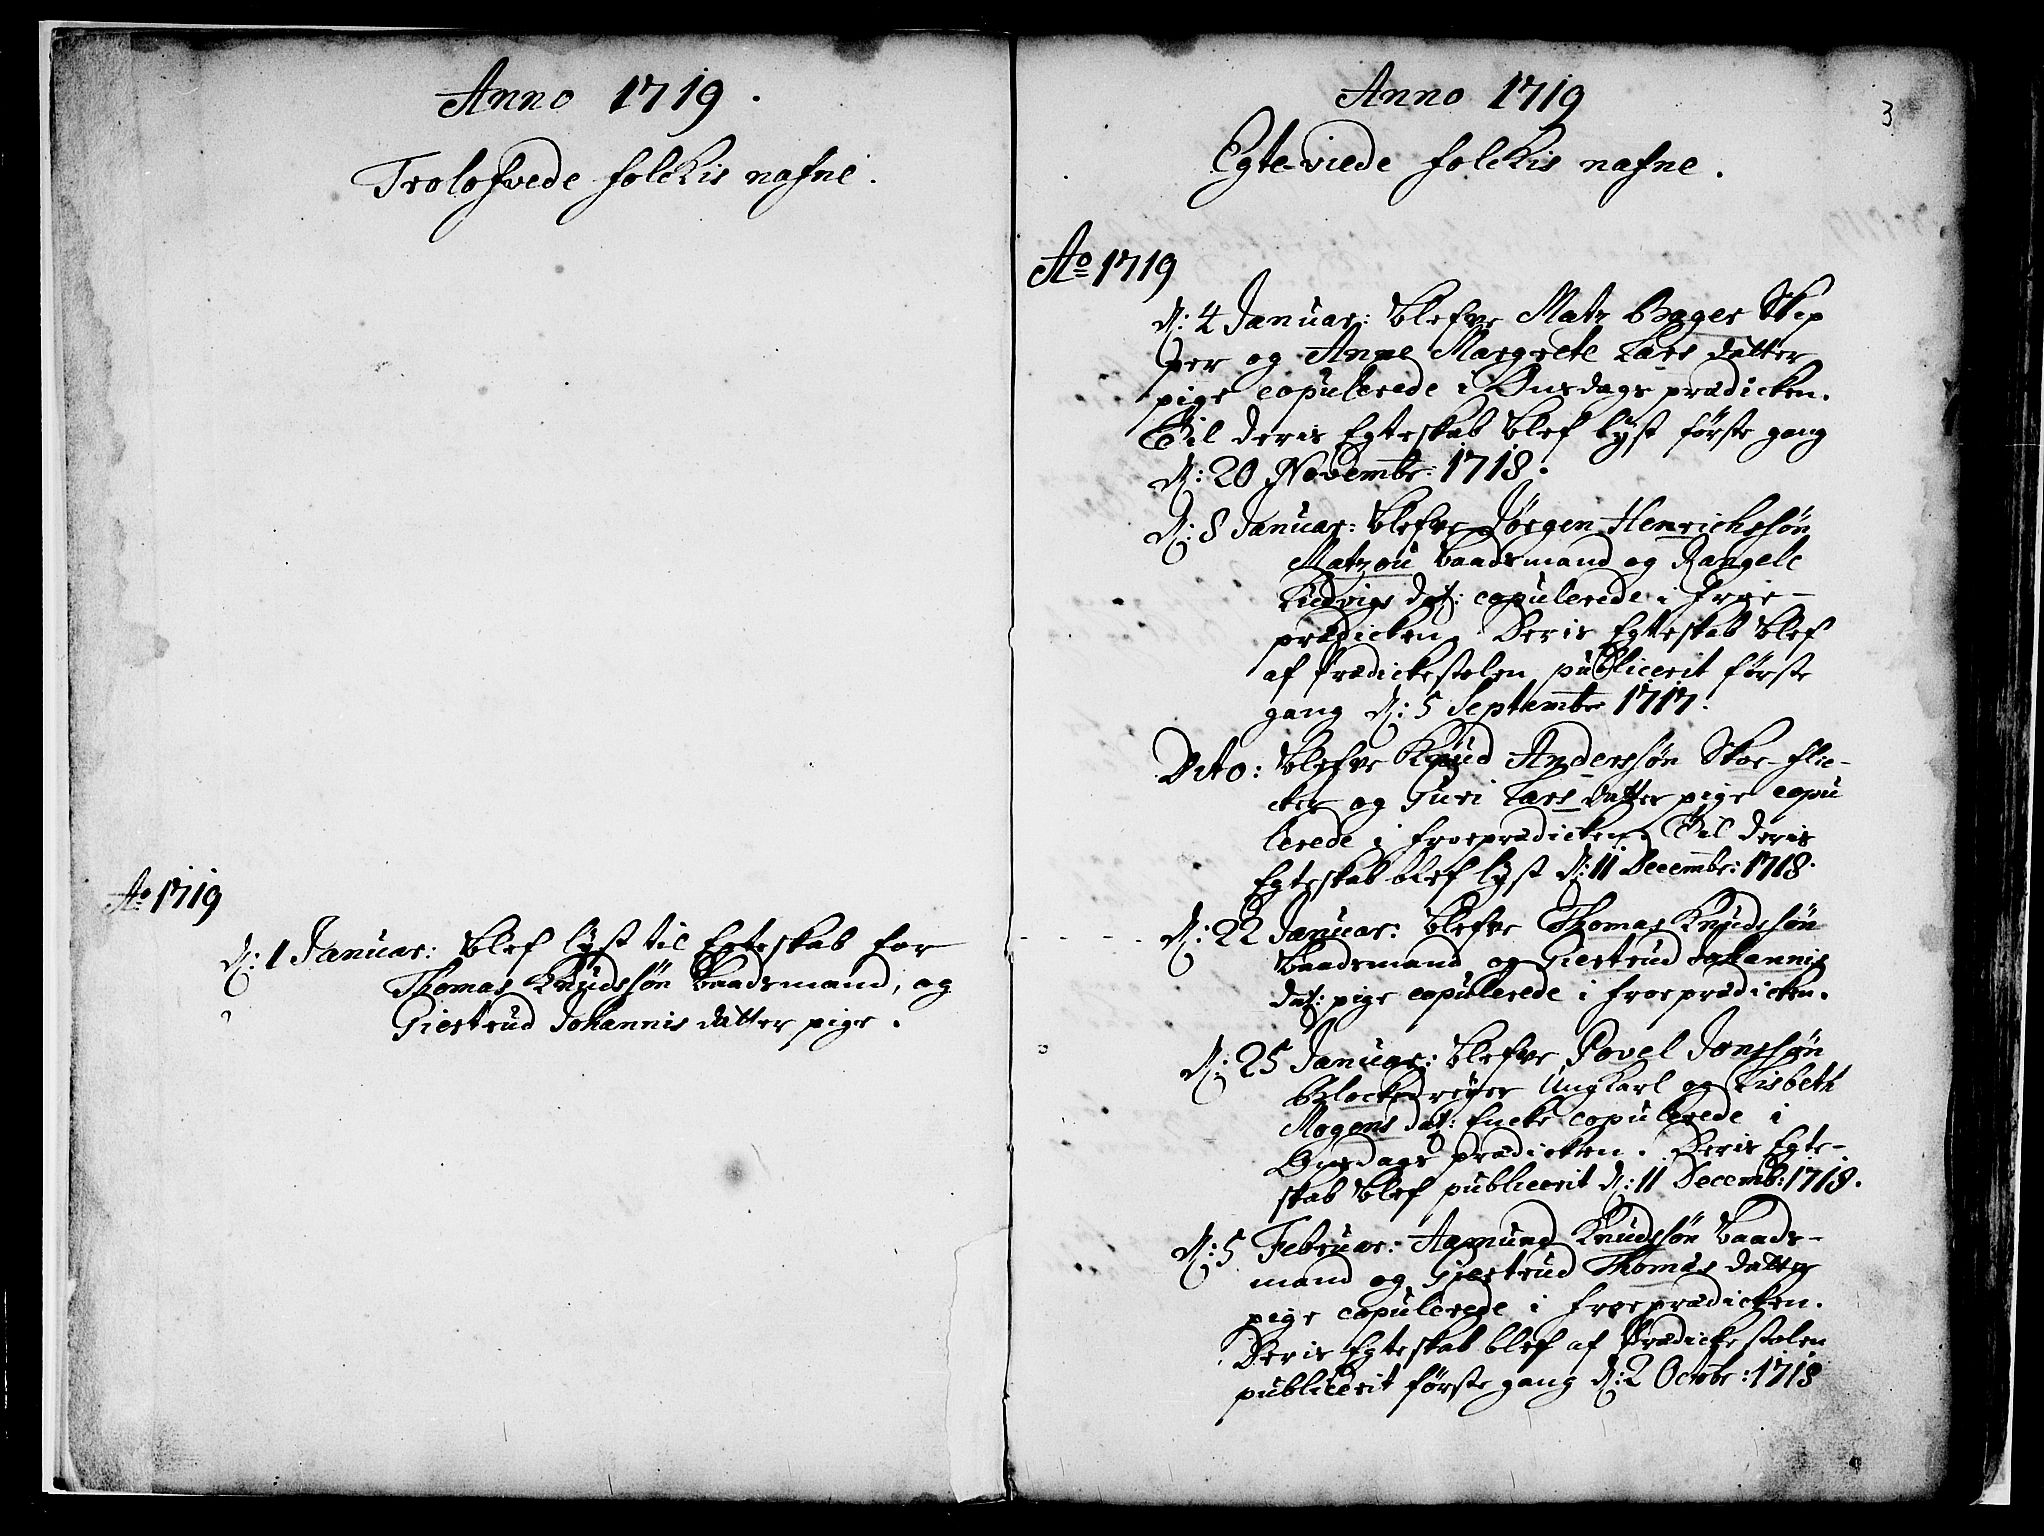 Anno 1719.
Trolofvede folckis nafne.
Ao 1719
D: 1 Januar: blef lyst til Egteskab for
Thomas Knudssøn baadsmand, og
Giertrud Johannis datter pige.
Anno 1719
3
Egteviede folckis nafne.
Ao 1719
D: 4 Januar: blefve Matz Bager Skip
per og Anne Margrete Lars datter
pige copulerede i Onsdags prædicken.
Til deris Egteskab blef lyst første gang
D: 20 Novembr: 1718.
D: 8 Januar: blefve Jørgen Henrichssøn
Matzou baadsmand og Rangele
Ludvigs dat: copulerede i froe-
prædicken. Deris Egteskab blef
af Prædickestolen publicerit første
gang D: 5 Septembr 1717.
Dito: blefve Knud Anderssøn Skoe-flic-
ker og Guri Lars datter pige copu
lerede i froeprædicken. Til deris
Egteskab blef lyst D: 11 Decembr: 1718.
D: 22 Januar: blefve Thomas Knudssøn
baadsmand og Giertrud Johannis
dat: pige copulerede i froeprædicken.
D: 25 Januar: blefve Povel Jonssøn
Blockedreyer Ungkarl og Lisbeth
Mogens dat: Encke copulerede i
Onsdags prædicken. Deris Egte-
skab blef publicerit D: 11 Decemb: 1718.
D: 5 Februar: Aamund Knudssøn baads-
mand og Giertrud Thomas datter
pige copulerede i froeprædicken.
Deris Egteskab blef af Prædickestolen
publicerit første gang D: 2 Octobr: 1718